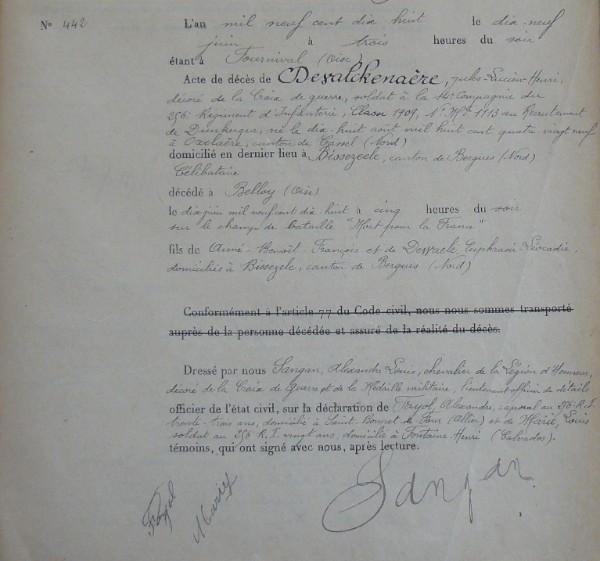 N° 442
L'an mil neuf cent dix huit le dix-neuf
juin à trois heures du soir
étant à Fournival (Oise)
Acte de décès de Devalckenaère, Jules-Lucien-Henri,
décoré de la Croix de guerre, soldat à la 11e Compagnie du
256e Régiment d'Infanterie, Classe 1909, N° Mle 1713 au Recrutement
de Dunkerque, né le dix-huit août mil huit cent quatre vingt neuf
à Oxelaëre, canton de Cassel (Nord)
domicilié en dernier lieu à Bissezeele, canton de Bergues (Nord)
Célibataire
décédé à Belloy (Oise)
le dix juin mil neuf cent dix-huit à cinq heures du soir
sur le champ de bataille "Mort pour la France"
fils de Aimé-Benoît-François et de Euphrasie Léocadie,
domiciliés à Bissezele, canton de Bergues (Nord)
Conformément à l'article 77 du Code civil, nous nous sommes transporté
auprès de la personne décédée et assuré de la réalité du décès.
Dressé par nous Sangan, Alexandre Louis, chevalier de la Légion d'Honneur,
décoré de la Croix de Guerre et de la Médaille militaire, lieutenant officier de détails
officier de l'état civil, sur la déclaration de Alexandre, caporal au 256e R.I.
trente-trois ans, domicilié à Saint-Bonnet de Four (Allier) et de Marie, Louis
soldat au 256 R.I. vingt ans, domicilié à Fontaine Henri (Calvados).
témoins, qui ont signé avec nous, après lecture.
Sangan
Marie